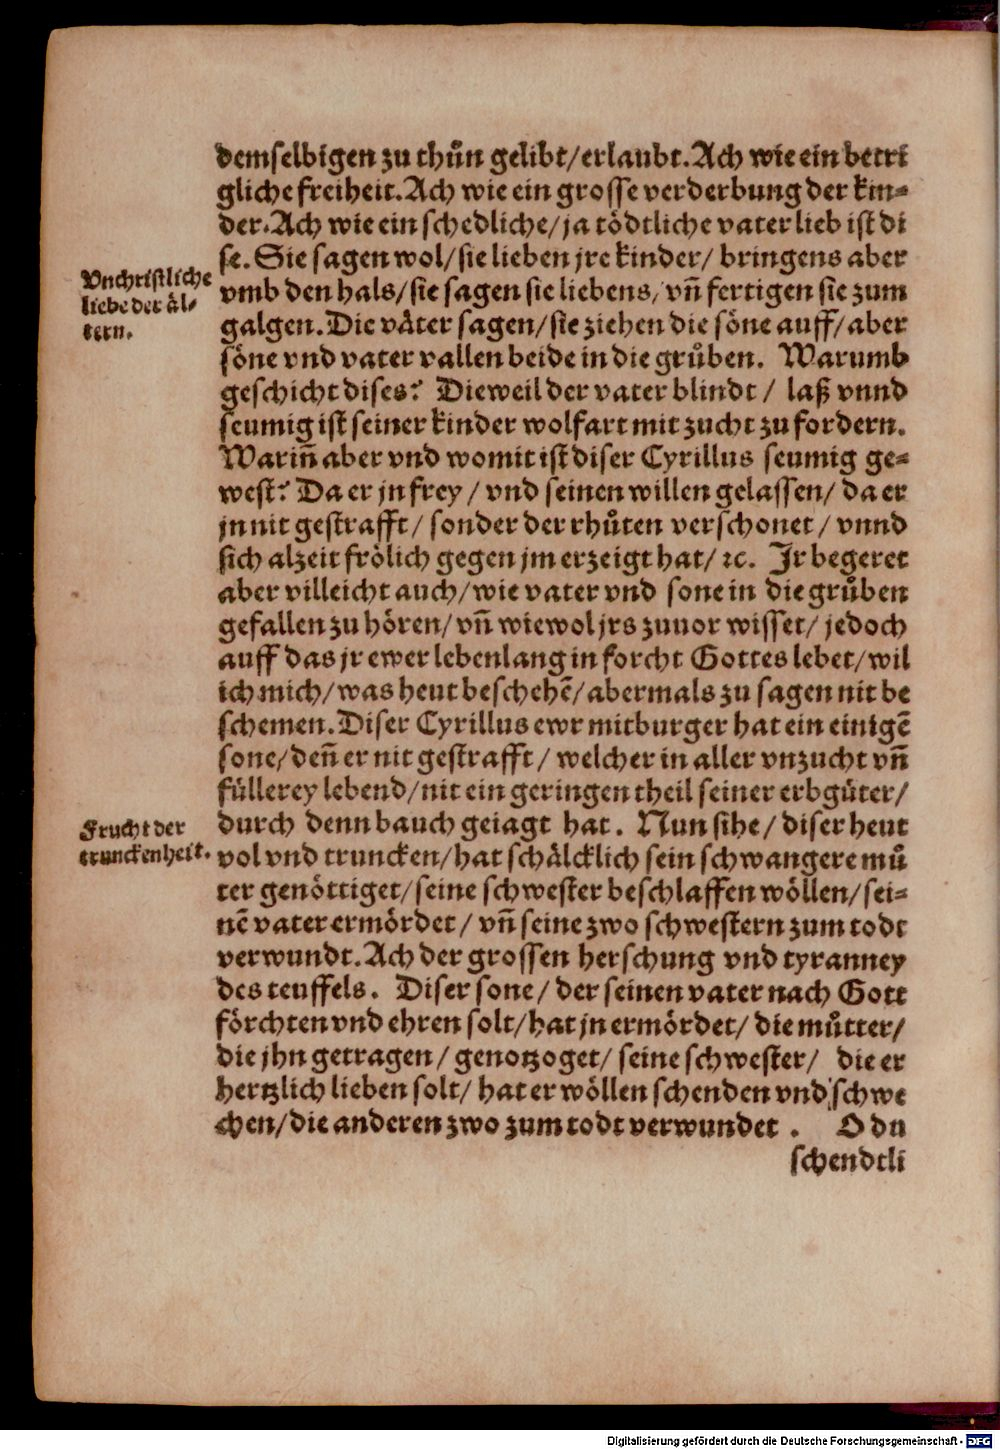 demselbigen zu thůn gelibt/erlaubt. Ach wie ein betri
gliche freiheit. Ach wie ein grosse verderbung der kin⸗
der. Ach wie ein schedliche/ ja tödtliche vater lieb ist di
se. Sie sagen wol/ sie lieben jre kinder/ bringens aber
Vnchristliche
liebe der äl⸗
tern.
vmb den hals/ sie sagen sie liebens/ vñ fertigen sie zum
galgen. Die väter sagen/ sie ziehen die söne auff/ aber
söne vnd vater vallen beide in die grůben. Warumb
geschicht dises? Dieweil der vater blindt / laß vnnd
seumig ist seiner kinder wolfart mit zucht zu fordern.
Wariñ aber vnd womit ist diser Cyrillus seumig ge⸗
west? Da er jn frey / vnd seinen willen gelassen/ da er
jn nit gestrafft/ sonder der rhůten verschonet / vnnd
sich alzeit frölich gegen jm erzeigt hat/ ꝛc. Jr begeret
aber villeicht auch/ wie vater vnd sone in die grůben
gefallen zu hören/ vñ wiewol jrs zuuor wisset/ jedoch
auff das jr ewer lebenlang in forcht Gottes lebet/ wil
ich mich/ was heut beschehẽ/ abermals zu sagen nit be
schemen. Diser Cyrillus ewr mitburger hat ein einigẽ
sone/ deñ er nit gestrafft / welcher in aller vnzucht vñ
füllerey lebend/ nit ein geringen theil seiner erbgüter/
Frucht der
trunckenheit.
durch denn bauch geiagt hat. Nun sihe/ diser heut
vol vnd truncken/ hat schälcklich sein schwangere mů
ter genöttiget/ seine schwester beschlaffen wöllen/ sei⸗
nẽ vater ermördet / vñ seine zwo schwestern zum todt
verwundt. Ach der grossen herschung vnd tyranney
des teuffels. Diser sone/ der seinen vater nach Gott
förchten vnd ehren solt/ hat jn ermördet/ die můtter/
die jhn getragen / genotzoget/ seine schwester/ die er
hertzlich lieben solt/ hat er wöllen schenden vnd schwe
chen/ die anderen zwo zum todt verwundet . O du
schendtli
Digitalisierung gefördert durch die Deutsche Forschungsgemeinschaft - DFG